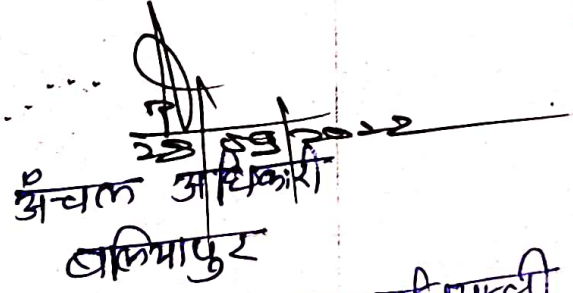 28 09 2022
अंचल अधिकारी
बलियापुर